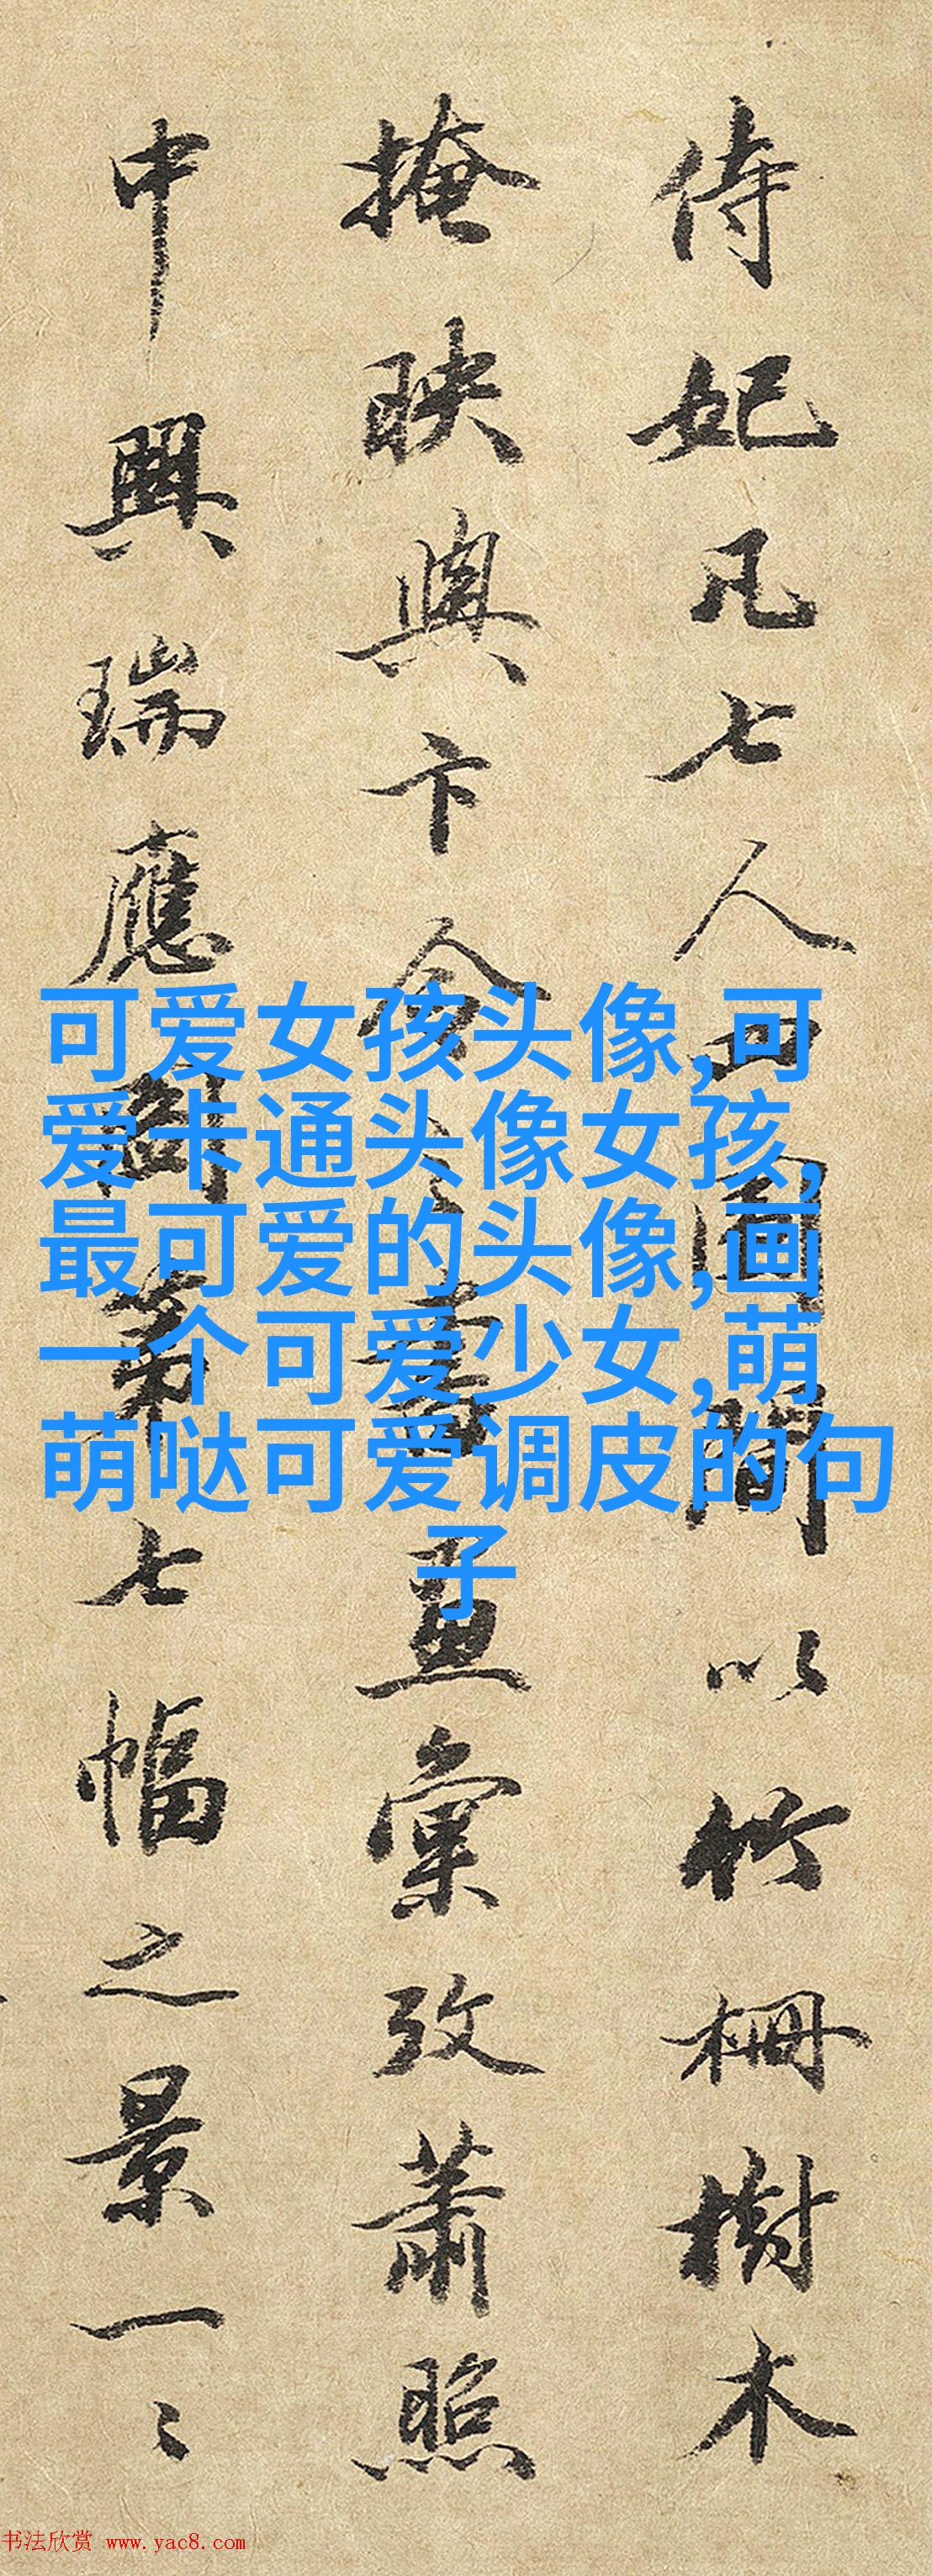 侍妃凡七人一圖間以竹栅樹木
掩映與卞令之畫彙攷蕭照
中興瑞應圖第七幅之景一〻
可爱女孩头像,可
爱卡通头像女孩,
最可爱的头像,画
一个可爱少女,萌
萌哒可爱调皮的句
子
书法欣赏 www.yac8.com